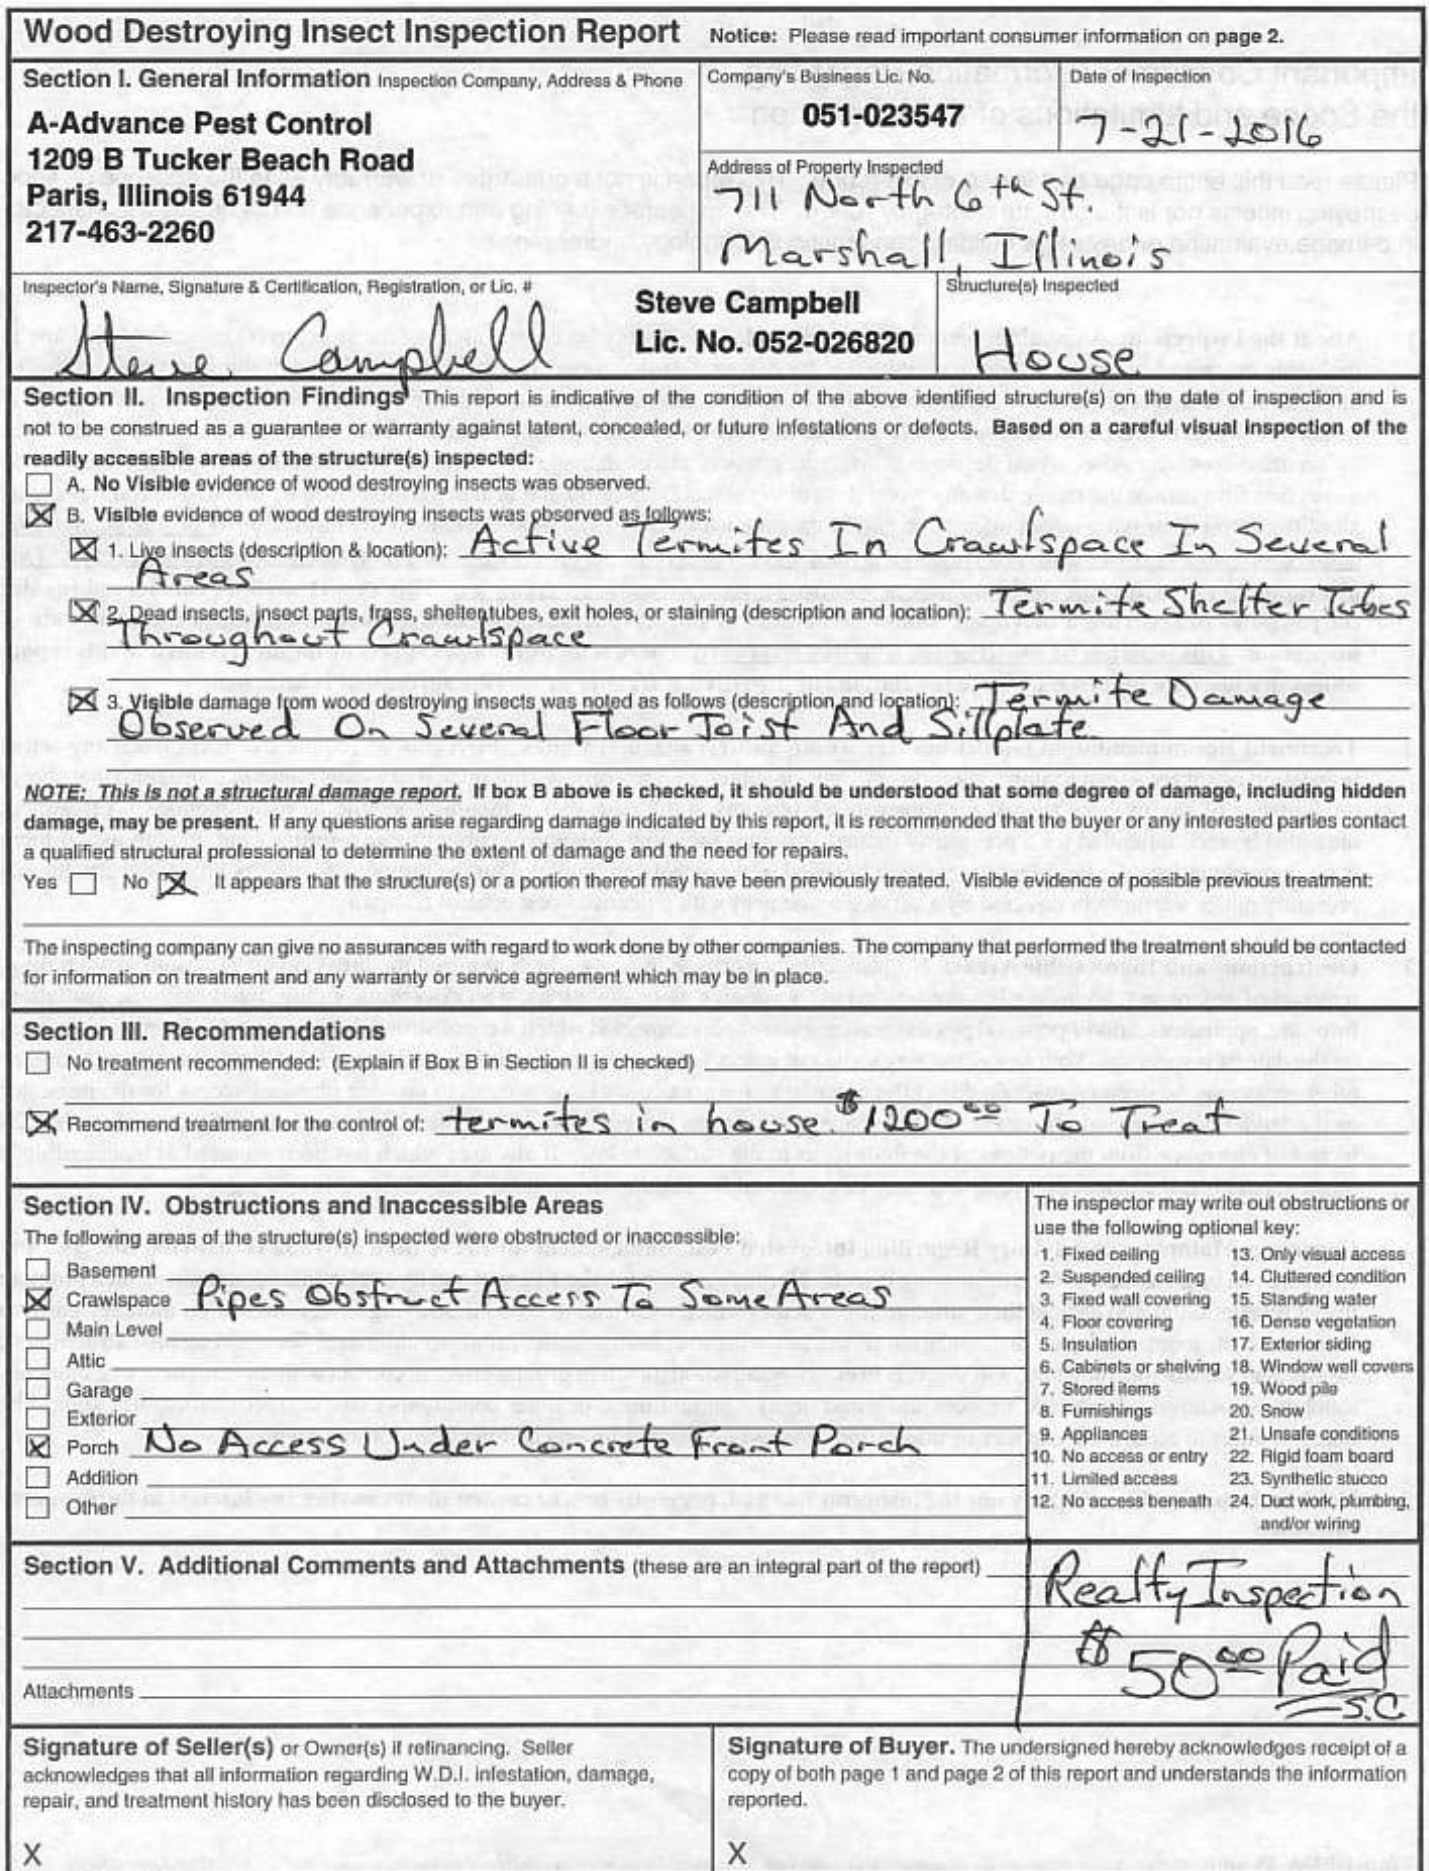 Wood Destroying Insect Inspection Report Notice: Please read important consumer information on page 2.
Section I. General Information Inspection Company, Address & Phone
A-Advance Pest Control
1209 B Tucker Beach Road
Paris, Illinois 61944
217-463-2260
Company's Business Lic. No.
051-023547
Date of Inspection
7-21-2016
Address of Property Inspected
711 North 6th St.
Marshall, Illinois
Inspector's Name, Signature & Certification, Registration, or Lic. #
Steve Campbell
Steve Campbell
Lic. No. 052-026820
Structure(s) Inspected
House
Section II. Inspection Findings This report is indicative of the condition of the above identified structure(s) on the date of inspection and is
not to be construed as a guarantee or warranty against latent, concealed, or future infestations or defects. Based on a careful visual inspection of the
readily accessible areas of the structure(s) inspected:
A. No Visible evidence of wood destroying insects was observed.
B. Visible evidence of wood destroying insects was observed as follows:
1. Live insects (description & location): Active Termites In Crawlspace In Several
Areas
2. Dead insects, insect parts, frass, shelter tubes, exit holes, or staining (description and location): Termite Shelter Tubes
Throughout Crawlspace
3. Visible damage from wood destroying insects was noted as follows (description and location): Termite Damage
Observed On Several Floor Joist And Sillplate.
NOTE: This is not a structural damage report. If box B above is checked, it should be understood that some degree of damage, including hidden
damage, may be present. If any questions arise regarding damage indicated by this report, it is recommended that the buyer or any interested parties contact
a qualified structural professional to determine the extent of damage and the need for repairs.
Yes No It appears that the structure(s) or a portion thereof may have been previously treated. Visible evidence of possible previous treatment:
The inspecting company can give no assurances with regard to work done by other companies. The company that performed the treatment should be contacted
for information on treatment and any warranty or service agreement which may be in place.
Section III. Recommendations
No treatment recommended: (Explain if Box B in Section II is checked)
Recommend treatment for the control of: termites in house. $1200.00 To Treat
Section IV. Obstructions and Inaccessible Areas
The following areas of the structure(s) inspected were obstructed or inaccessible:
Basement
Crawlspace Pipes Obstruct Access To Some Areas
Main Level
Attic
Garage
Exterior
Porch No Access Under Concrete Front Porch
Addition
Other
The inspector may write out obstructions or
use the following optional key:
1. Fixed ceiling 13. Only visual access
2. Suspended ceiling 14. Cluttered condition
3. Fixed wall covering 15. Standing water
4. Floor covering 16. Dense vegetation
5. Insulation 17. Exterior siding
6. Cabinets or shelving 18. Window well covers
7. Stored items 19. Wood pile
8. Furnishings 20. Snow
9. Appliances 21. Unsafe conditions
10. No access or entry 22. Rigid foam board
11. Limited access 23. Synthetic stucco
12. No access beneath 24. Duct work, plumbing,
and/or wiring
Section V. Additional Comments and Attachments (these are an integral part of the report)
Realty Inspection
$50.00 Paid
S.C
Attachments
Signature of Seller(s) or Owner(s) if refinancing. Seller
acknowledges that all information regarding W.D.I. infestation, damage,
repair, and treatment history has been disclosed to the buyer.
X
Signature of Buyer. The undersigned hereby acknowledges receipt of a
copy of both page 1 and page 2 of this report and understands the information
reported.
X